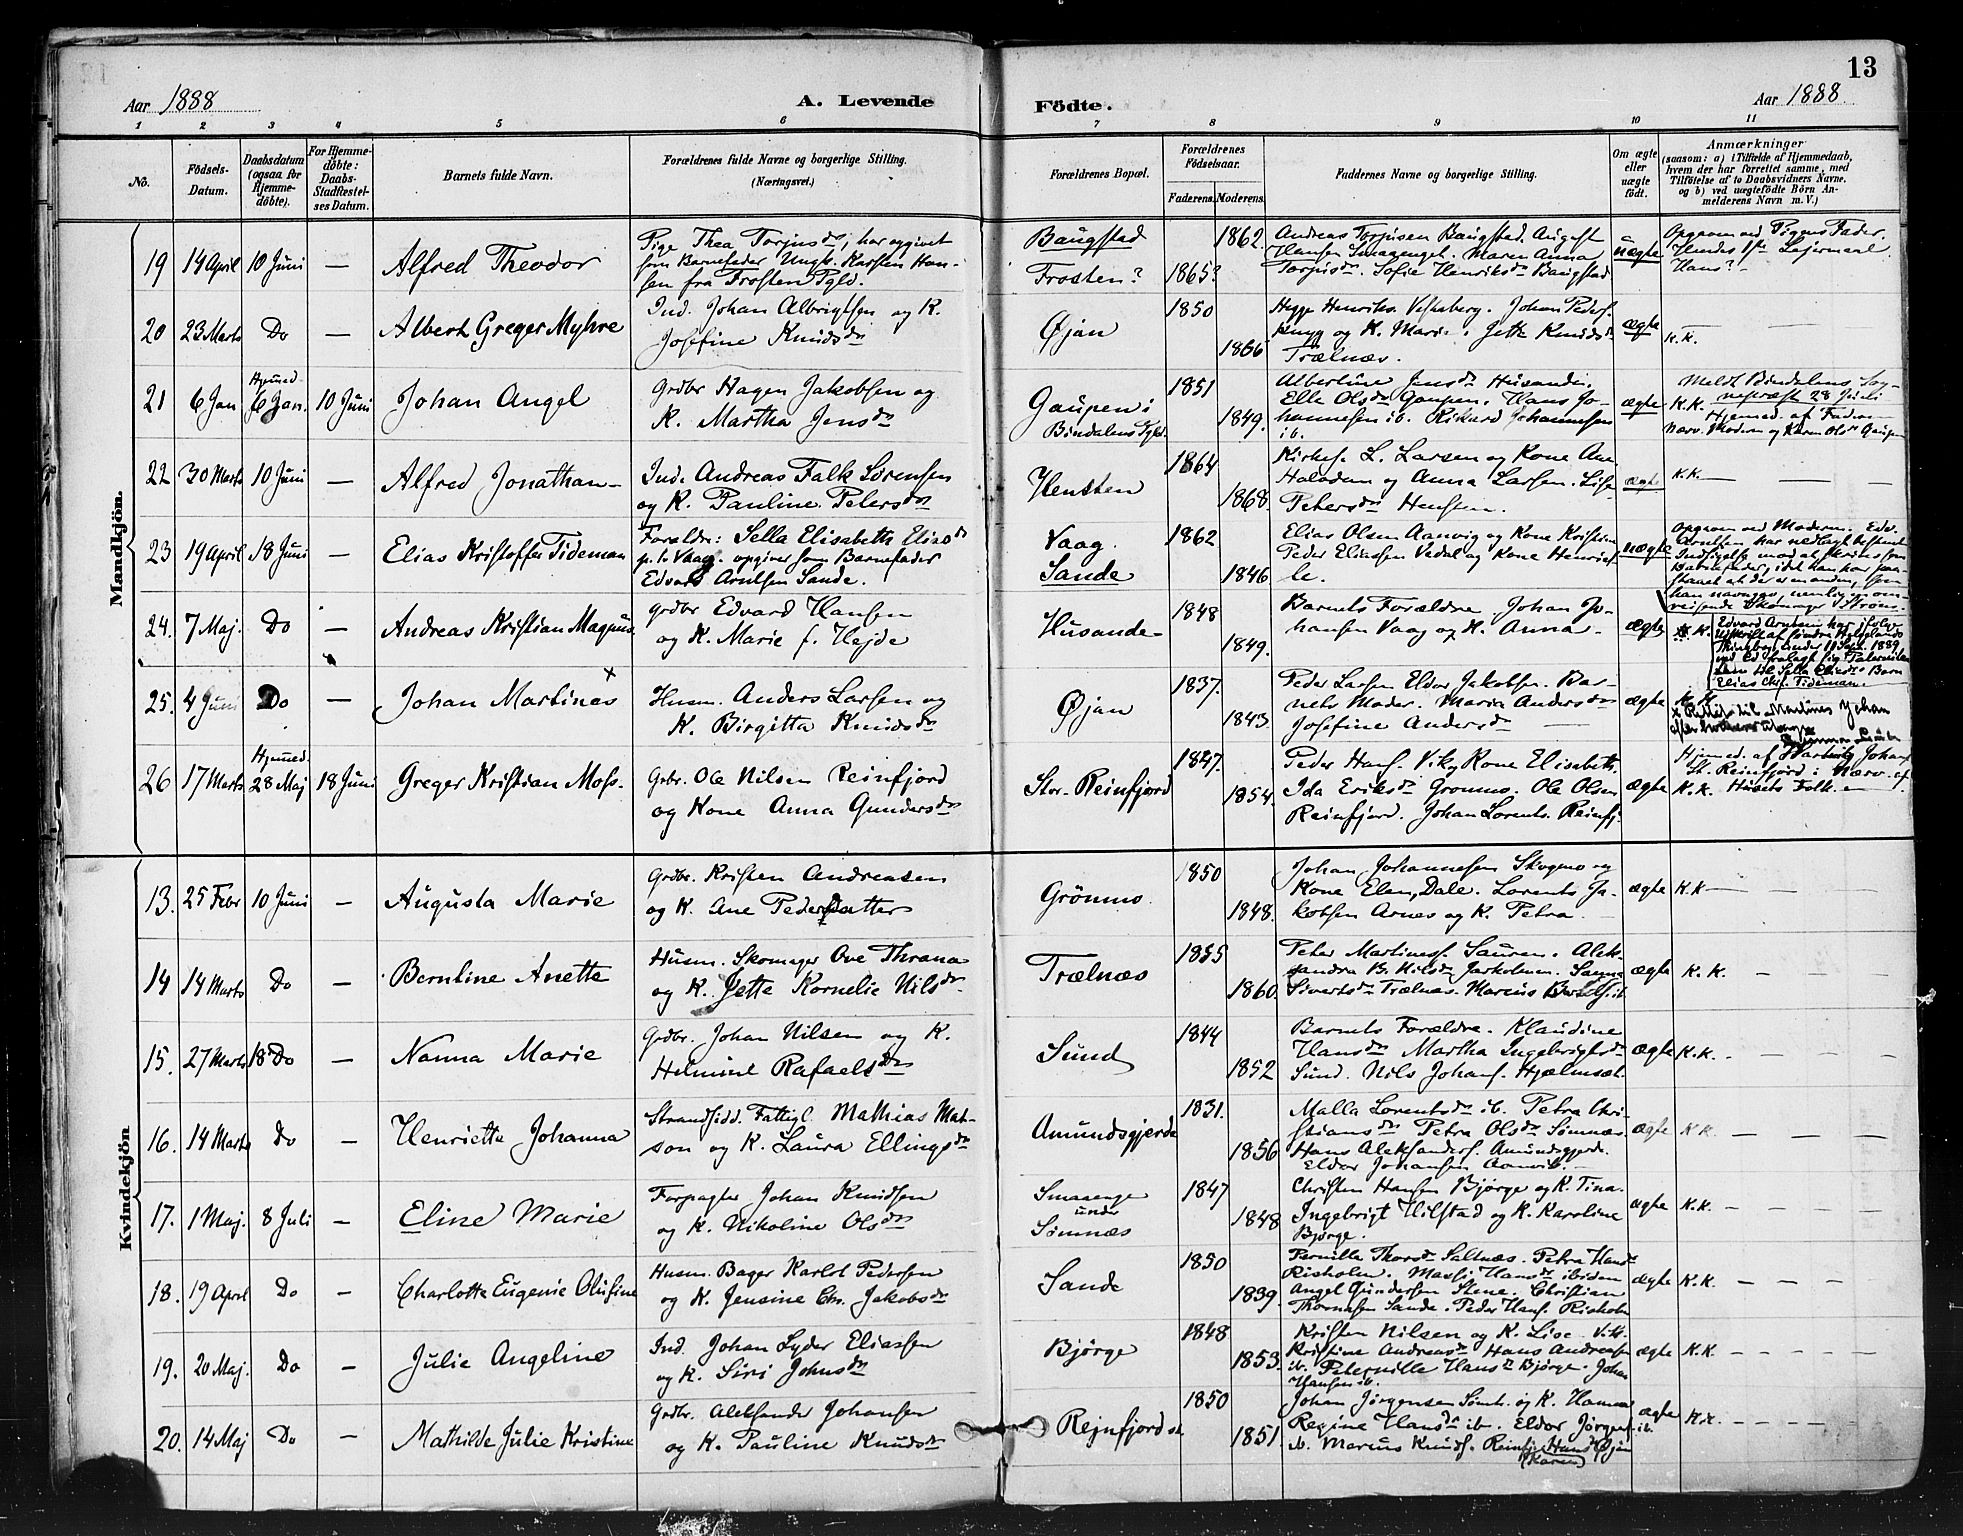 13
Aar 1888
A. Levende
Födte.
Aar 1888.
1 2 3 4 5 6 7 8 9 10 11
No.
Födsels-
Datum.
Daabsdatum
(ogsaa for
Hjemme-
döbte).
For Hjemme-
döbte:
Daabs-
Stadfæstel-
ses Datum.
Barnets fulde Navn.
Forældrenes fulde Navne og borgerlige Stilling.
(Næringsvei.)
Forældrenes Bopæl.
Forældrenes
Födselsaar.
Faderens. Moderens.
Faddernes Navne og borgerlige Stilling.
Om ægte
eller
uægte
födt.
Anmærkninger
(saasom: a) i Tilfælde af Hjemmedaab,
hvem der har forrettet samme, med
Tilföielse af to Daabsvidners Navne,
og b) ved uægtefödte Börn An-
melderens Navn m. V.)
Mandkjön.
19 14 April 10 Juni — Alfred Theodor
Pige Thea Torjusdr, har opgivet
som Barnefader Ungk. Karsten Han-
sen fra Frosten Pgld.
Baugstad
Frosten?
1862.
1865?
Andreas Torjusen Baugstad. August
Hansen Smaaenget. Maren Anna
Torjusdr. Sofie Henriksdr Baugstad
uægte
Opgivn ved Pigens Fader.
Hendes 1ste Leiermaal
Hans? -
20 23 Marts Do — Albert Greger Myhre
Ind. Johan Albrigtsen og K.
Josefine Knudsdr
Øjan
1850
1866
Johan Peders.
og K. Marie. Jette Knudsdr
Trælnæs.
ægte
K.K.
21 6 Jan Hjemmed. 6 Jan. 10 Juni Johan Angel
Grdbr Hagen Jakobsen og
K. Martha Jensdr
Gaupen i
Bindalens Pgld.
1851
1849.
Albertine Jensdr Husande.
Elle Olsdr Gaupen. Hans Jo-
hannesen ib. Rikard Johannesen
ib.
ægte
Meldt Bindalens Sog-
nepræst 28 Juli
K.K. Hjemmed. af Faderen
Nærv. Moderen og Karen Olsdr Gaupen
22 30 Marts 10 Juni — Alfred Jonathan
Ind. Andreas Falk Sørensen
og K. Pauline Petersdr
Hensten
1864
1868.
Kirkes. L. Larsen og Kone Ane
og Anna Larsen. Lise
Petersdr Hensten.
ægte
K.K. —
23 19 April 18 Juni — Elias Kristoffer Tideman
Forældre: Sella Elisabeth Eliasdr
p. t. Vaag. opgiver som Barnefader
Edvard Arntsen Sande.
Vaag.
Sande
1862
1846
Elias Olsen Aanvig og Kone Kristine
Peder Eliassen Vedal og Kone Henriet-
te.
uægte
Opgivn ved Moderen. Edv.
Arntsen har nedlagt bestemt
Indsigelse mod at skrives som
Barnefader, idet han har paa-
staaet at der er en anden, som
han navngav, nemlig en om-
reisende Skomager Strøm.
24. 7 Maj. Do — Andreas Kristian Magnus.
Grdbr Edvard Hansen
og K. Marie f. Hejde
Husande
1848
1849.
Barnets Forældre. Johan Jo-
hansen Vaag og K. Anna
ægte
K.
Edvard Arntsen har ifølge
Udskrift af Søndre Helgelands
Thingbog under 19 Sept. 1889
ved Ed fralagt sig Paternite-
ten til Sella Eliasdr Barn
Elias Chr. Tideman.
25. 4 Juni Do — Johan Martines ×
Husm. Anders Larsen og
K. Birgitta Knudsdr
Øjan
1837.
1843.
Peder Larsen Eldor Jakobsen. Bar-
nets Moder. Maria Andersdr
Josefine Andersdr —
ægte
K.K.
× Rettet til Martines Johan
26 17 Marts Hjemmed. 28 Maj 18 Juni Greger Kristian Moss.
Grbr. Ole Nilsen Reinfjord
og Kone Anna Gundersdr
Stor-Reinfjord
1847.
1854.
Peder Hans. Vik og Kone Elisabeth.
Ida Eriksdr Grønmo. Ole Olsen
Reinfjord. Johan Lorents. Reinfj.
ægte
Hjemmed. af
St. Reinfjord i Nærv. af
K.K. Husets Folk.
Kvindekjön
13. 25 Febr 10 Juni — Augusta Marie
Grdbr. Kristen Andreasen
og K. Ane Pedersdatter
Grönmo.
1850
1848.
Johan Johannesen Skogmo og
Kone Elen, Dale. Lorents Ja-
kobsen Arnes og K. Petra.
ægte
K.K —
14 14 Marts Do — Berntine Anette
Husm. Skomager Ove Thrana
og K. Jette Kornelie Nilsdr.
Trælnæs
1855
1860.
Peter Martines. Sauren. Alek-
sandra B. Nilsdr Jarholmen. Sanna
Sivertsdr Trælnæs. Marcus ib
ægte
K.K. —
15. 27 Marts 18 Do — Nanna Marie
Grdbr. Johan Nilsen og K.
Helmine Rafaelsdr
Sund
1844
1852
Barnets Forældre. Klaudine
Hansdr Martha Ingebrigtsdr
Sund. Nils Johans. Hjælmset.
ægte
K.K. —
16. 14 Marts Do — Henriette Johanna
Strandsidd. Fattigl. Mathias Mat-
son og K. Laura Ellingsdr
Amundsgjerde
1831.
1856
Malla Lorentsdr ib. Petra Chri-
stiansdr Petra Olsdr Sømnæs.
Hans Aleksanders. Amundsgjerde.
Eldor Johansen Aanvik. —
ægte
K.K. —
17. 1 Maj. 8 Juli — Eline Marie
Forpagter Johan Knudsen
og K. Nikoline Olsdr
Smaaenge
under
Sømnæs
1847
1848
Christen Hansen Bjørge og K. Tina.
Ingebrigt Hilstad og K. Karoline
Bjørge.
ægte
K.K. —
18. 19 April Do — Charlotte Eugenie Olufine
Husm. Bager Karlot Pedersen
og K. Jensine Chr. Jakobsdr
Sande
1850
1839.
Pernille Thorsdr Saltnæs. Petra Hansdr
Risholm. Massi Hansdr ibiden
Angel Gundersen Stene. Christian
Thomesen Sande. Peder Hans. Risholm
ægte
K.K. —
19. 20 Maj. Do — Julie Angeline
Ind. Johan Lyder Eliassen
og K. Siri Johnsdr
Bjørge
1848
1853.
Kristen Nilsen og K. Lise Vik.
Kristine Andreasdr Hans Andreasen
ib. Peternille Hansdr Bjørge. Johan
Hansen ib.
ægte
K.K. —
20. 14 Maj Do — Mathilde Julie Kristine
Grdbr. Aleksander Johansen
og K. Pauline Knudsdr
Rejnfjord st.
1850
1851.
Johan Jørgensen Sömh. og K. Hanna
Regine Hansdr ib. Eldor Jørgens. ib.
ib. Marcus Knuds. Reinfj. Hansdr Øjan
(Karen)
ægte
K.K. —